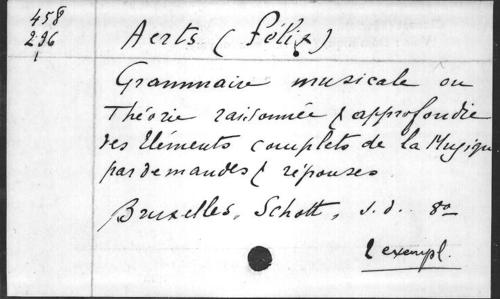 458
296
1
Aerts (Félix)
Grammaire musicale ou
Théorie raisonnée & approfondie
des Eléments complets de la Musique
par demandes & réponses.
Bruxelles, Schott, s.d. 8o
2 exempl.